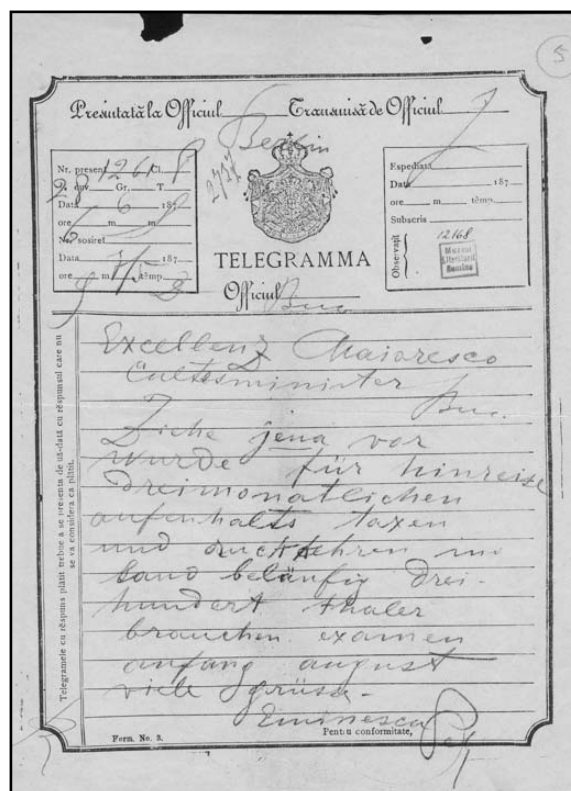 5
Presintată la Officiul Transmisă de Officiul
Berlin
Nr. present 1261 Cl.
Gr. T
Data 6 187
ore m. m
Nr. sosiret
Data 7/5 187
ore m. têmp.
2727
Espediată
Data 187
ore m têmp.
Subscris
Observații
12168
Muzeul
Literaturii
Române
TELEGRAMMA
Officiul Buc.
Telegramele cu rĕspuns plătit trebue a se presenta de uă-dată cu rĕspunsul care nu
se va considera ca plătit.
Excellenz Maioresco
Cultusminister
Buc.
Ziehe jena vor
wurde für hinreise
dreimonatlichen
aufenhalts taxen
und ruckkehren in
land beläufig drei-
hundert thaler
brauchen examen
anfang august
viele grüsse -
Eminescu
Form. No. 3.
Pentru conformitate,